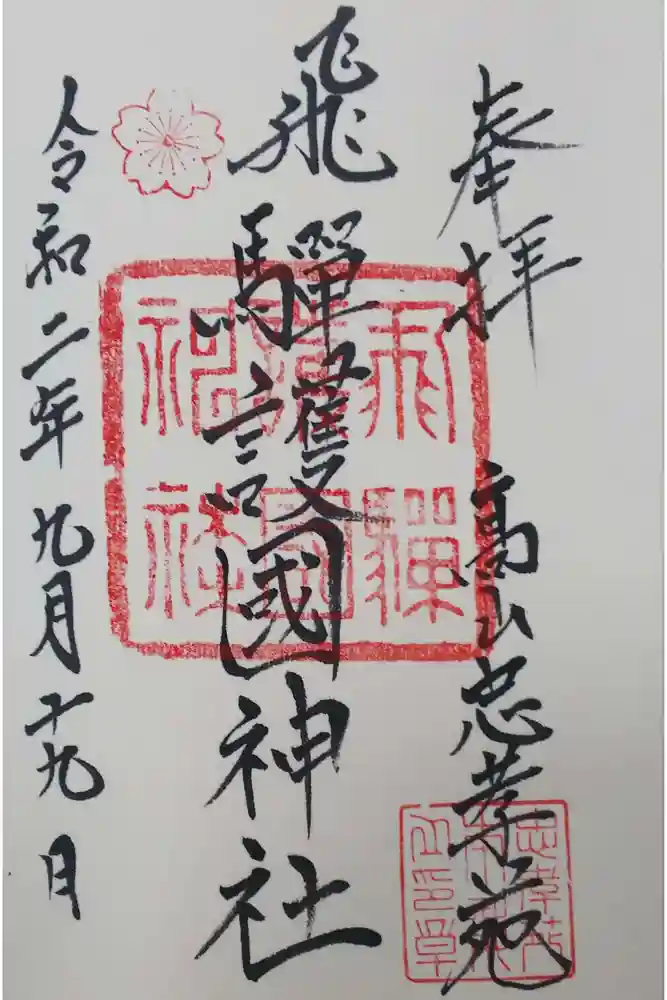 奉拝
高山忠孝苑
飛騨護國神社
令和二年九月十九日
飛騨
護國
神社